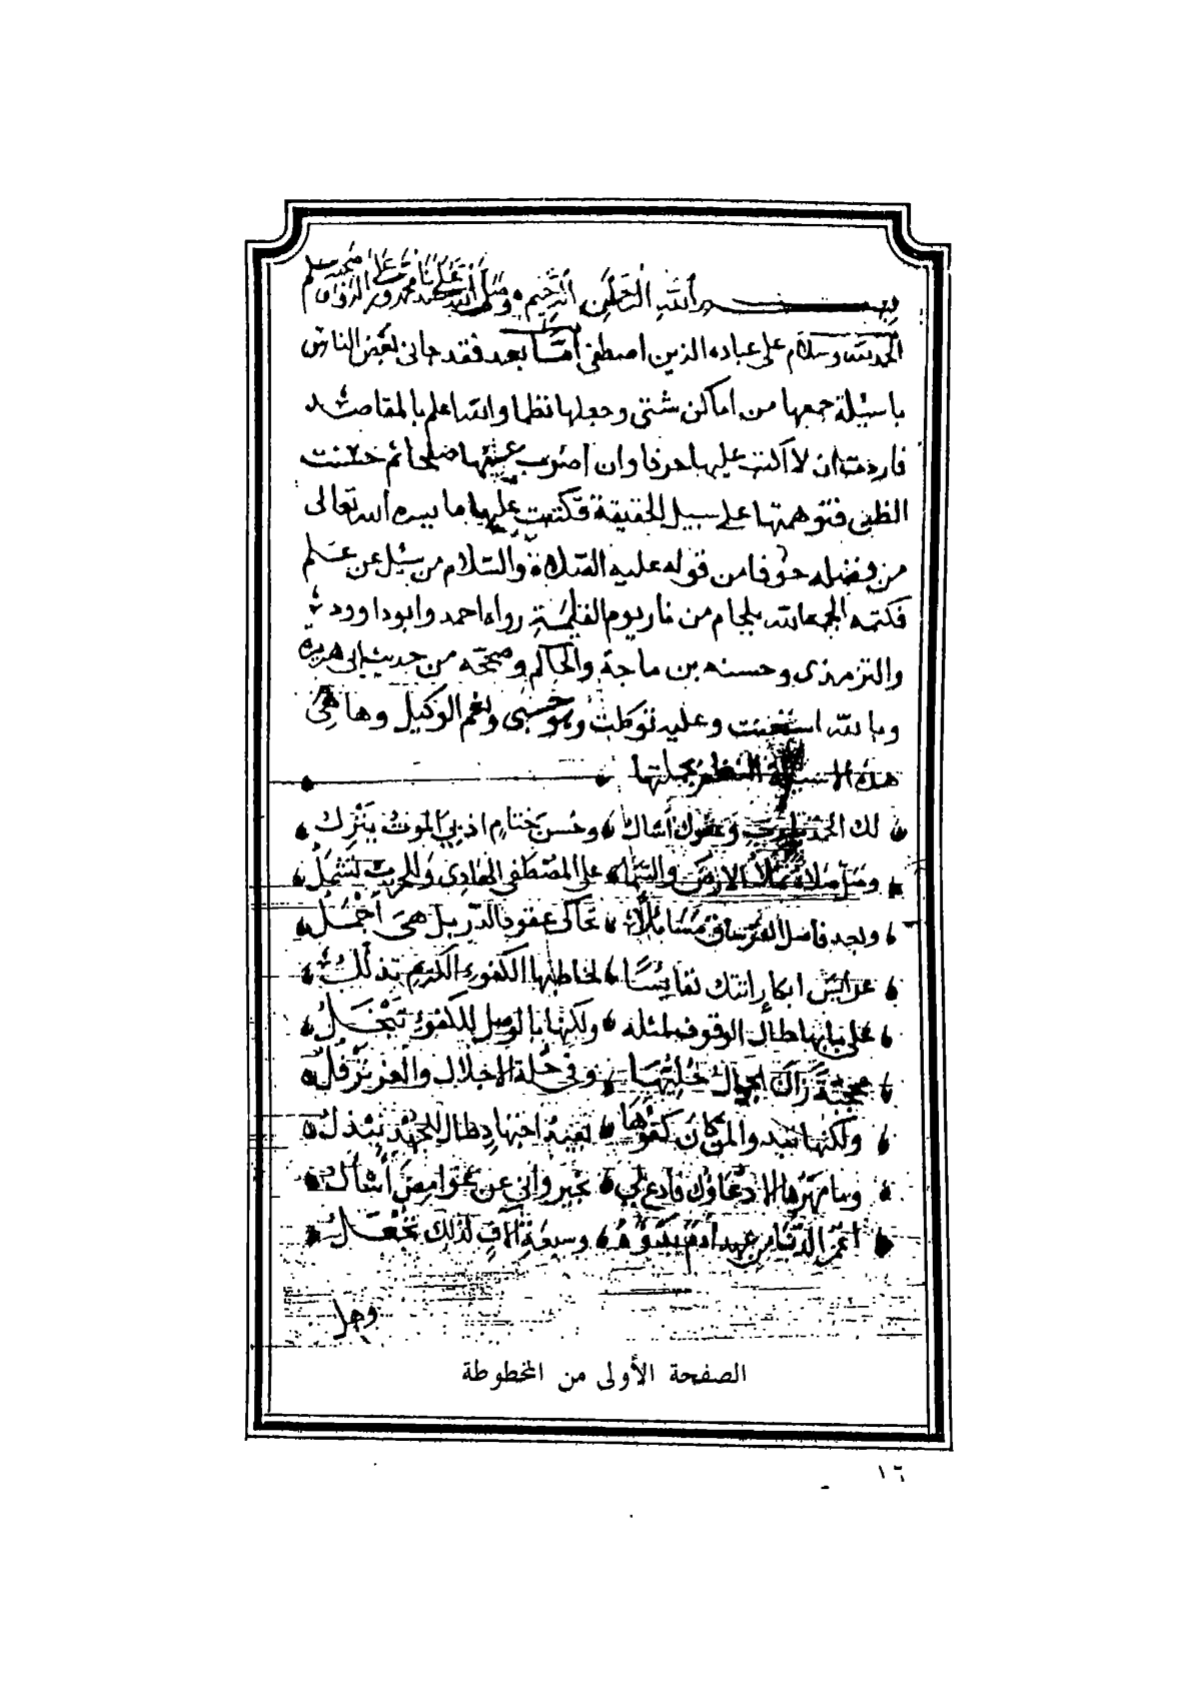 بسم الله الرحمن الرحيم وصلى الله على سيدنا محمد وعلى صحبه وسلم
الحمد لله وسلام على عباده الذين اصطفى اما بعد فقد جاني بعض الناس
باسئلة جمعها من اماكن شتى وجعلها نظما والله اعلم بالمقاصد
فاردت ان لا اكتب عليها حرفا وان اصوب ثم خشيت
الظن فتوهمتها على سبيل الحقيقة فكتبت عليها ما يسره الله تعالى
من فضله خوفا من قوله عليه الصلاة والسلام من سئل عن علم
فكتمه الجمه الله بلجام من نار يوم القيمة رواه احمد وابو داوود
والترمذي وحسنه بن ماجة والحاكم وصححه من حديث ابي هريرة
وبالله استعنت وعليه توكلت وهو حسبي ونعم الوكيل وها هي
هذه الاسئلة النظم بجملتها
لك الحمد وعفوك أسأل وحسن ختام اذ بي الموت ينزل
وصل صلاة تملأ الارض والسما على المصطفى الهادي وللحزب تشمل
وبعد فاصل العز ساق مسائلا تحاكى عقود الدر بل هي أجمل
عرائس ابكار اتتك نفائسا لخاطبها الكفوء الكريم تذلل
على بابها طال الوقوف لمثله ولكنها بالوصل للكفوء تبخل
محجبة زان الجمال حليها وفي حلة الاجلال والعز ترفل
ولكنها تبدو لمن كان كفوها بغية اجتهاد طال للجهد يبذل
وما مهرها الا دعاؤك فادع لي بخير واني عن غوامض أسأل
أعمر الدنيا من عهد آدم وسبعة آلاف لذلك تجعل
وهل
الصفحة الأولى من المخطوطة
١٦